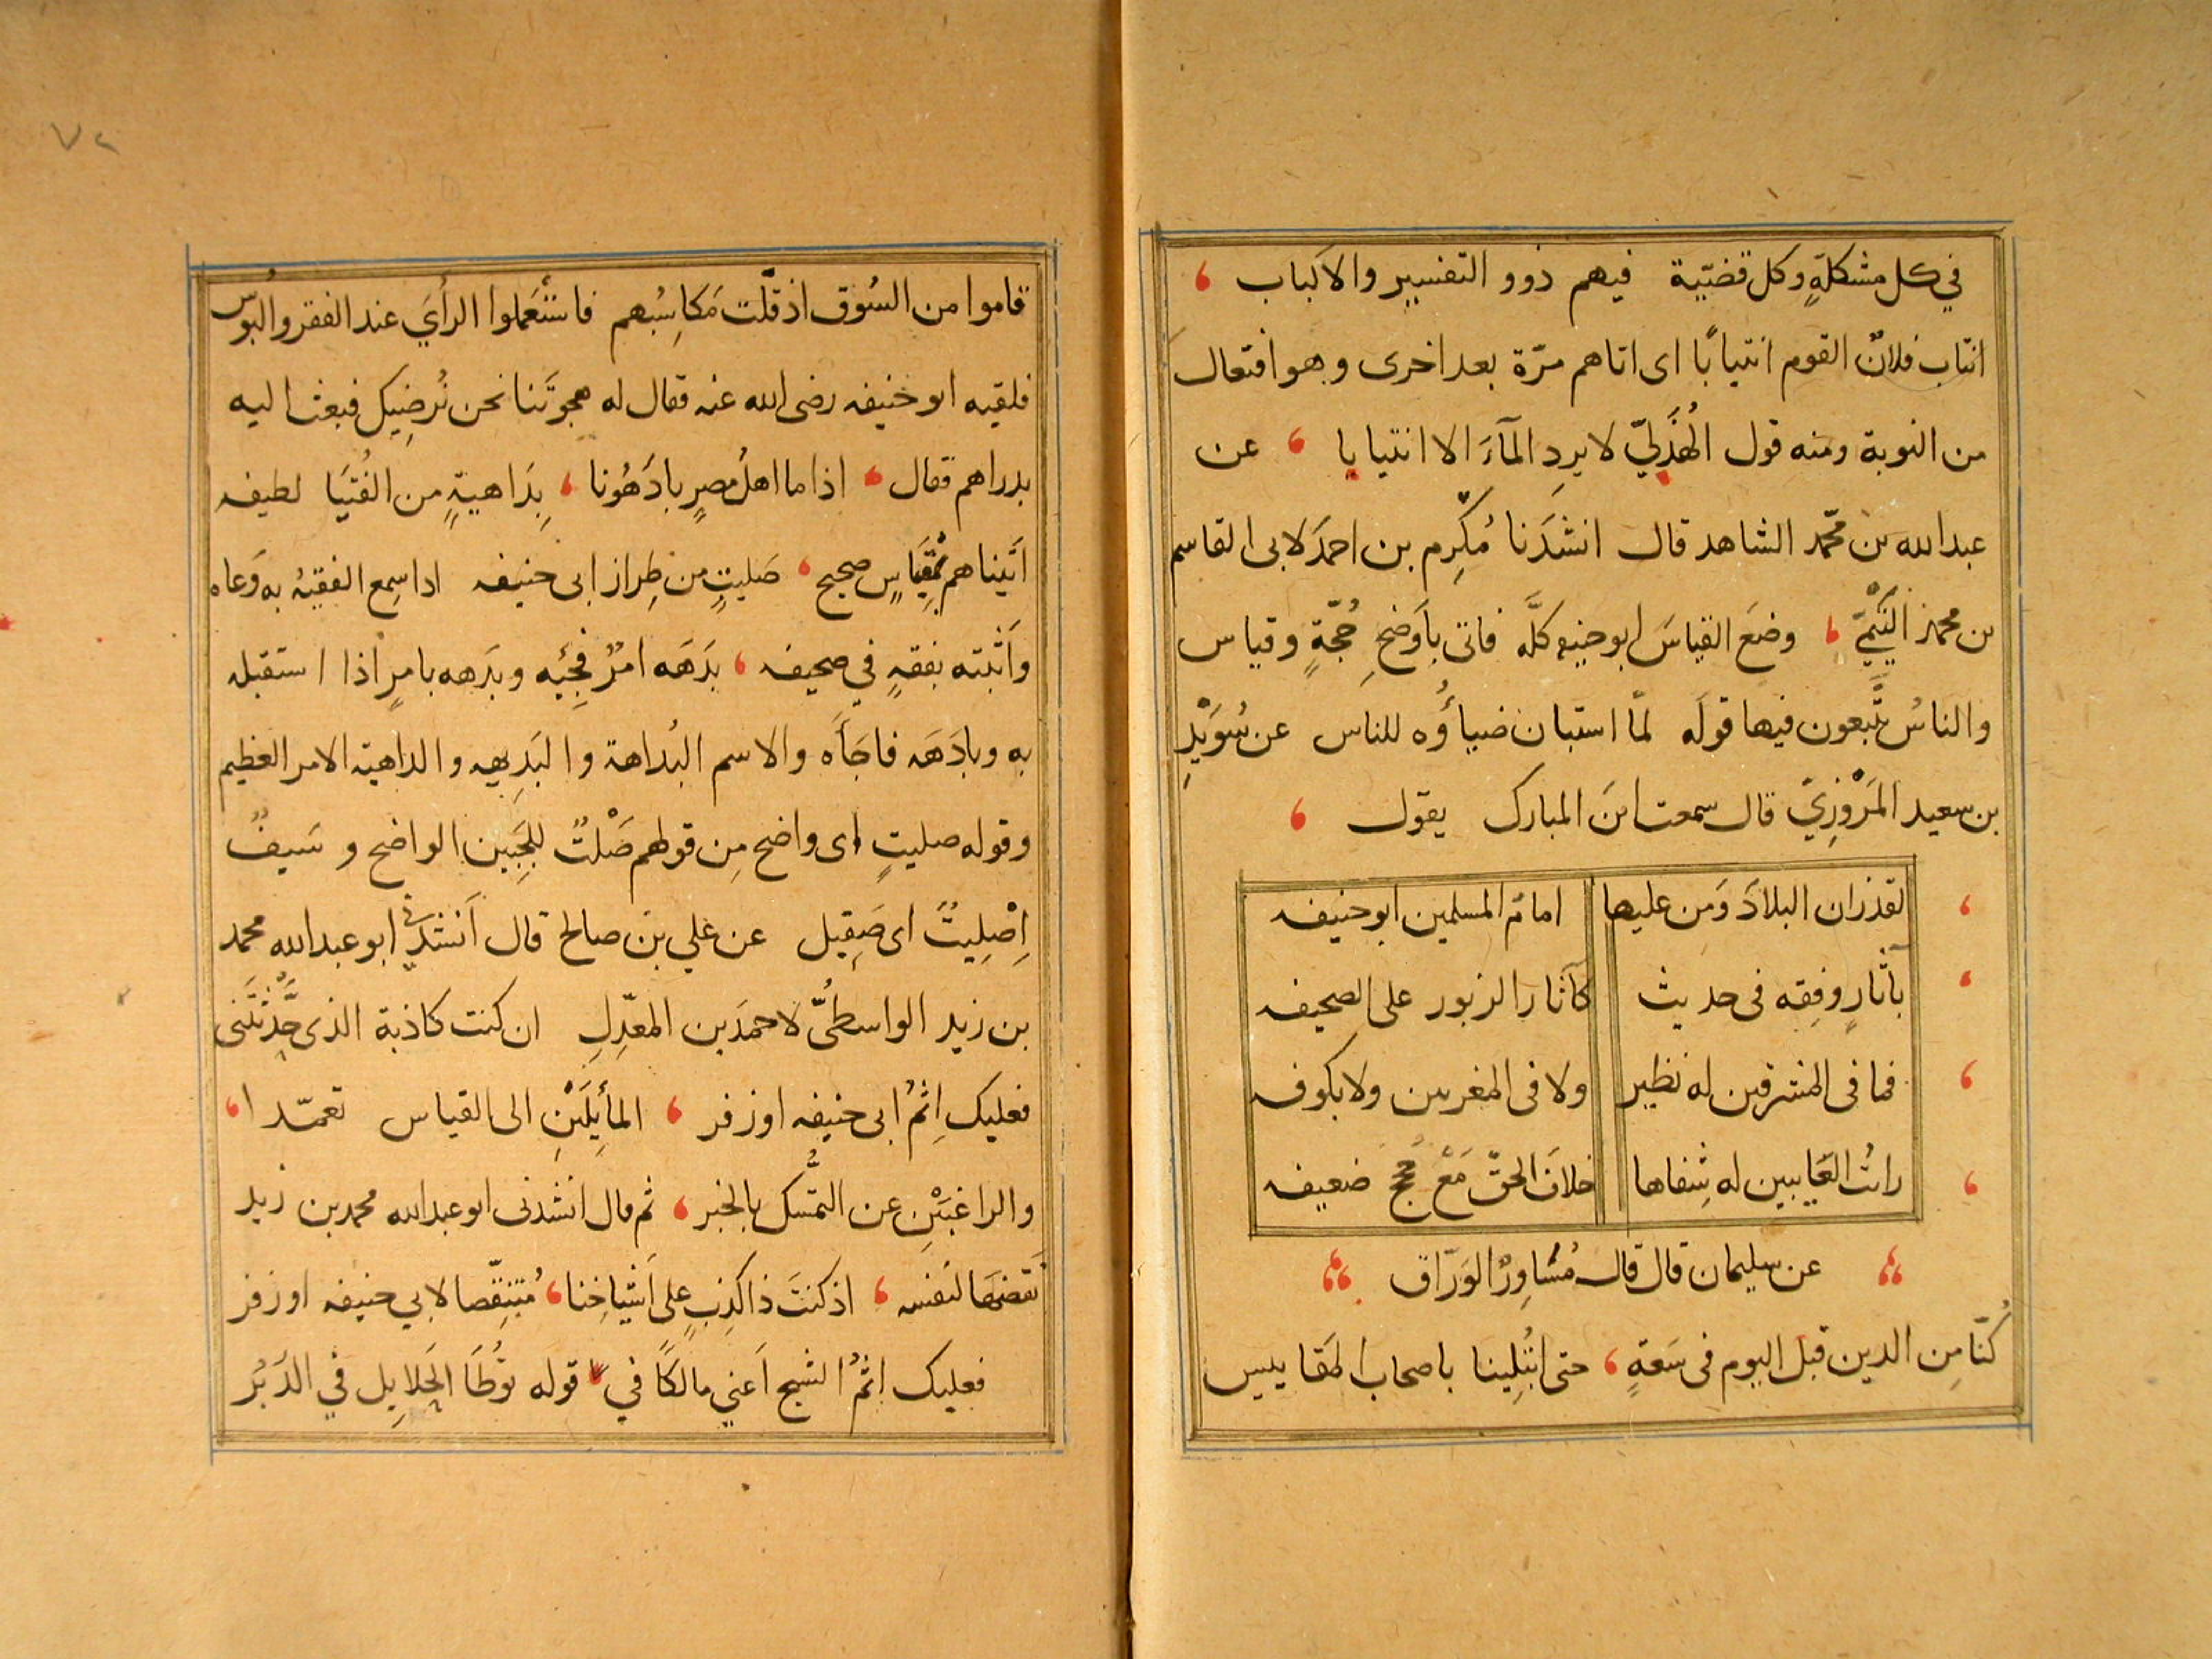 في كل مشكلةٍ وكل قضيّية فيهم ذوو التفسيير والالباب ،
انتاب فلانٌ القوم انتيابًا اى اتاهم مرّة بعد اخرى وهو افتعال
من النوبة ومنه قول الهُذَليّ لا يردِ المآءَ الا انتيابا ، عن
عبدالله بن محمّد الشاهد قال انشدَنا مُكْرِم بن احمدَ لابى القاسم
بن محمد التَيْمِيّ ، وضعَ القياسَ ابو حنيفه كلَّه فاتى باَوضحِ حُجّةٍ وقياس
والناسُ يتَّبعون فيها قولَه لمّا استبان ضياؤُه للناس عن سُوَيْدِ
بن سعيد المَرْوَزِيّ قال سمعت ابنَ المبارك يقول ،
، لقد زان البلادَ وَمن عليها امامُ المسلمين ابو حنيفه
، بآثارٍ وفِقه فى حديث كآثار الزبور على الصحيفه
، فما فى المشرقين له نظير ولا فى المغربين ولا بكوفه
، رائتُ العَايبين له سِفاها خلافَ الحقّ مَعْ حُججٍ ضعيفه
عن سليمان قال قال مُسَاوِرْ الوَرّاق
كُنّا مِن الدين قبل اليوم فى سَعةٍ ، حتى ابْتُلِينا باصحاب المقاييس
٧٢
قاموا من السُوق اذ قلّت مَكاسِبُهم فاستَعْمَلوا الرأيَ عند الفقر والبُوس
فلقيه ابو حنيفه رضى الله عنه فقال له هجوتَنا نحن نُرضِيك فبعث اليه
بدراهم فقال ، اذا ما اهلُ مصرٍ بادَهُونا ، بِدَاهيةٍ من الفُتيَا لطيفه
اَتَيناهم بمِقْيَاسٍ صحيح ، صَليتٍ من طِراز ابى حنيفه اذا سِمع الفقيهُ به وَعاه
واَثبته بفقهٍ في صحيفه ، بدَهَه امرٌ فجِئَه وبدَهه بامرٍ اذا استقبله
به وبادَهَه فاجَاَه والاسم البُداهة والبَدِيهه والداهية الامر العظيم
وقوله صليتٍ اى واضح مِن قولهم صَلْتُ للجَبِين الواضح وسَيفٌ
اِصْلِيتٌ اى صَقِيل عن علي بن صالح قال اَنشدني ابو عبدالله محمد
بن زيد الواسطىّ لاحمدَ بن المعدّلِ ان كنت كاذبة الذى حَدَّثْتَنى
فعليك اِثمُ ابى حنيفه او زفر ، المأيِلَيْنِ الى القياس تعمّدا ،
والراغبَيْنِ عن التمَسُّك بالخبر ، ثم قال انشدنى ابو عبدالله محمد بن زيد
نَقضهَا لنفسه ، اذ كنتَ ذا كذِبٍ على اَشياخِنا ، مُتَنقِّصا لابي حنيفه او زفر
فعليك اثمُ الشيخ اَعني مالكًا في ، قوله تُوطَا الحَلايِل في الدَبُر